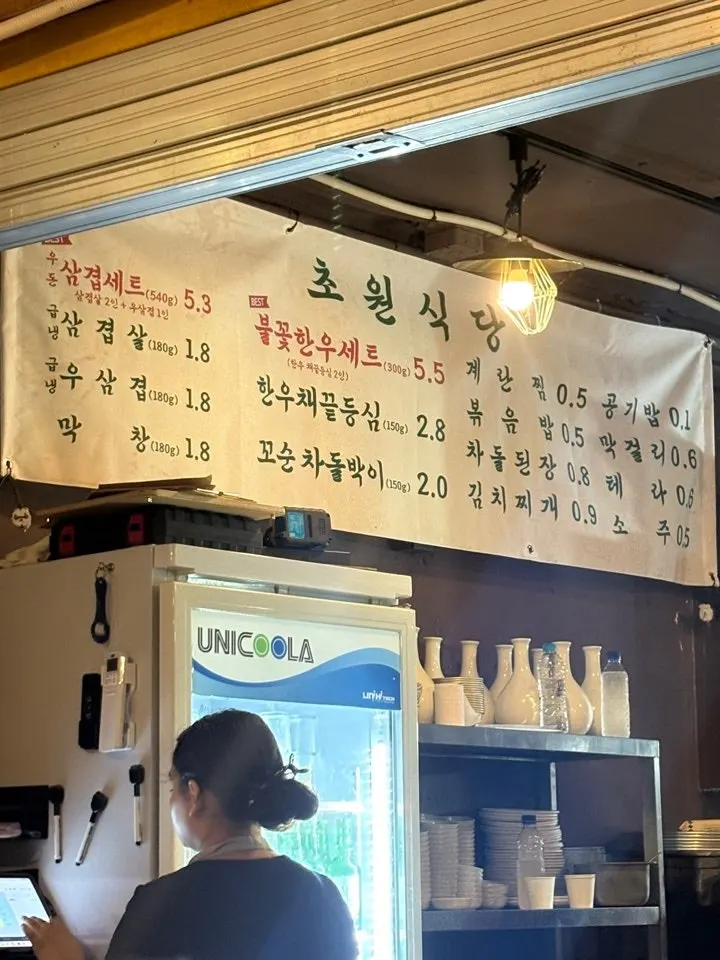 초원식당
BEST
우돈 삼겹세트(540g) 5.3
삼겹살 2인 + 우삼겹 1인
급냉 삼겹살(180g) 1.8
급냉 우삼겹(180g) 1.8
막창(180g) 1.8
BEST
불꽃한우세트(300g) 5.5
(한우 채끝등심 2인)
한우채끝등심(150g) 2.8
꼬순차돌박이(150g) 2.0
계란찜 0.5
볶음밥 0.5
차돌된장 0.8
김치찌개 0.9
공기밥 0.1
막걸리 0.6
테라 0.6
소주 0.5
UNICOOLA